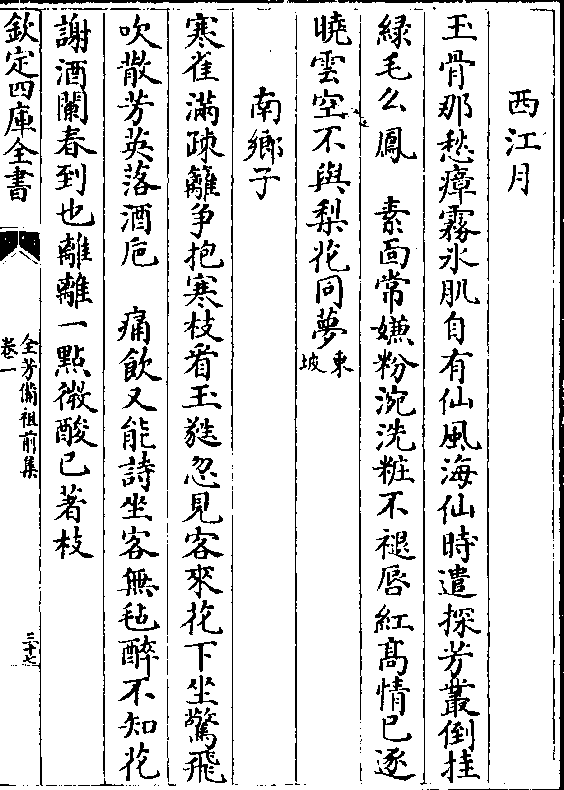 西江月
玉骨那愁瘴霧氷肌自有仙風海仙時遣探芳叢倒挂
緑毛么鳳　素面常嫌粉涴洗粧不褪唇紅髙情已逐
曉雲空不與梨花同夢東坡
南鄉子
寒雀滿疎籬争抱寒枝看玉蕤忽見客來花下坐驚飛
吹散芳英落酒卮　痛飲又能詩坐客無毡醉不知花
謝酒闌春到也離離一㸃微酸已著枝
欽定四庫全書
全芳備祖前集
卷一
三十七